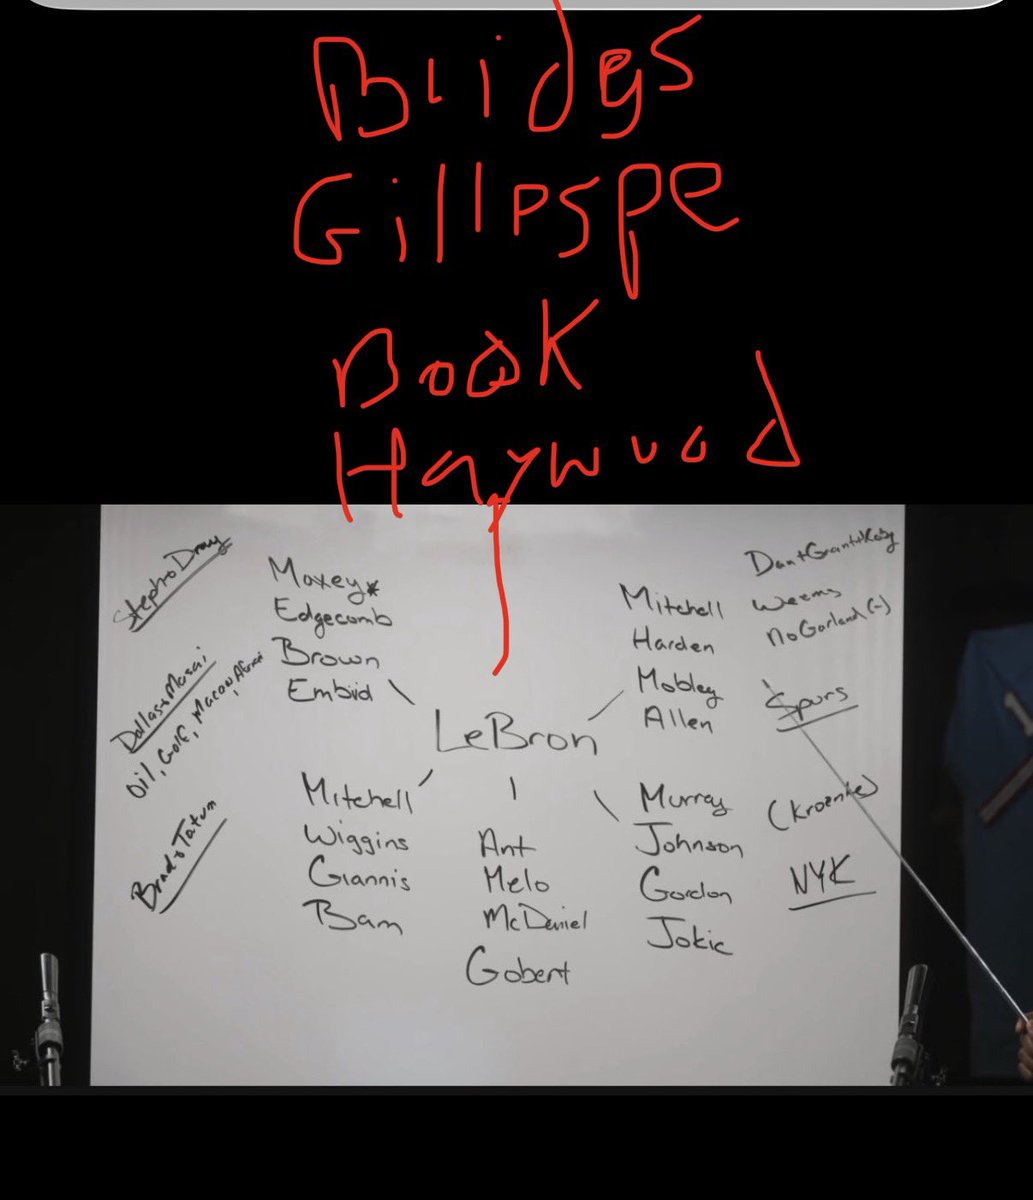 Bridgs
Gillespe
Book
Haywood
Steph+Dray
Maxey*
Edgecomb
Brown
Embiid
Dallas+Masai
Oil, Golf,
Brad+Tatum
LeBron
Mitchell
Harden
Mobley
Allen
Weems
No Garland (-)
Spurs
(Kroenke)
NYK
Mitchell
Wiggins
Giannis
Bam
Ant
Melo
McDaniel
Gobert
Murray
Johnson
Gordon
Jokic